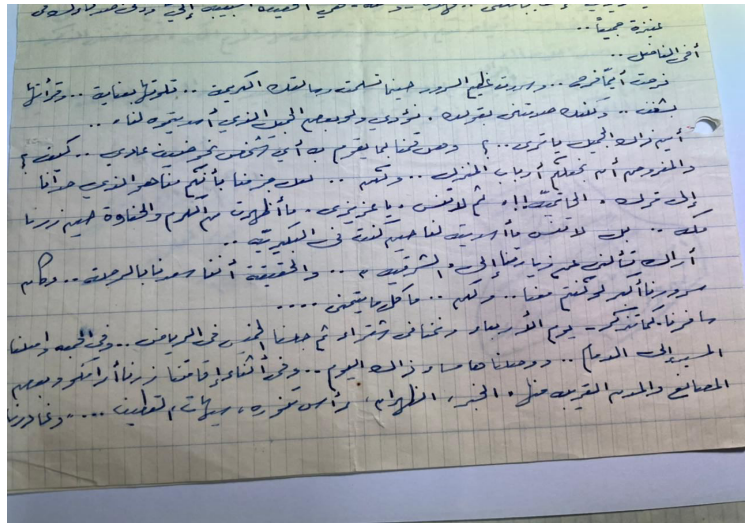 عنيزة جميعاً ..
أخي الفاضل ..
فرحت أيّما فرح .. وسررت عظيم السرور حينما تسلمت رسالتك الكريمة .. تلوتها بعناية .. وقرأتها
بشغف .. ولكنك صدمتني بقولك . نؤدي ولو بعض الجميل الذي أسديتموه لنا ..
أين ذاك الجميل يا ترى .. ؟ وهل قمنا بما يقوم به أي شخص نحو ضيف عادي .. كيف ؟
والمفروض أن نجعلكم أرباب المنزل .. ولكن .. لعل جزمنا بأنكم منا هو الذي حدانا
إلى ترك . الواجب !! . ثم لا تنس . يا عزيزي . ما أظهرت من الكرم والحفاوة حين زرنا
مكة .. بل لا تنس ما أسديت لنا حين كنت في البكيرية ..
أراك تسألني عن زيارتنا إلى . الشرقية . .. والحقيقة أننا سعدنا بالرحلة .. وكان
سرورنا أكبر لو كنتم معنا .. ولكن .. ما كل ما يتمنى ....
سافرنا كما تذكر . يوم الأربعاء ونمنا في شقراء ثم جلسنا الخميس في الرياض .. وفي الجمعة واصلنا
المسير إلى الدمام .. ووصلناها مساء ذاك اليوم .. وفي أثناء إقامتنا زرنا أرامكو وبعض
المصانع والمدن القريبة منها . الخبر ، الظهران ، رأس تنوره ، سيهات ، القطيف .... وغادرنا